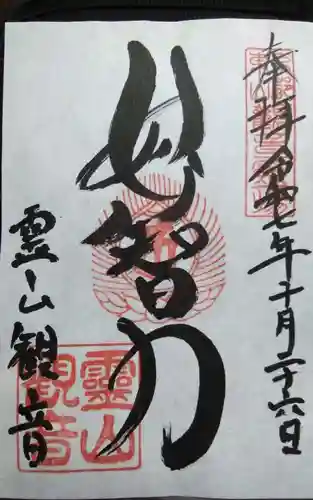 奉拝 令和七年十月二十六日
妙智力
霊山観音
靈山
観音